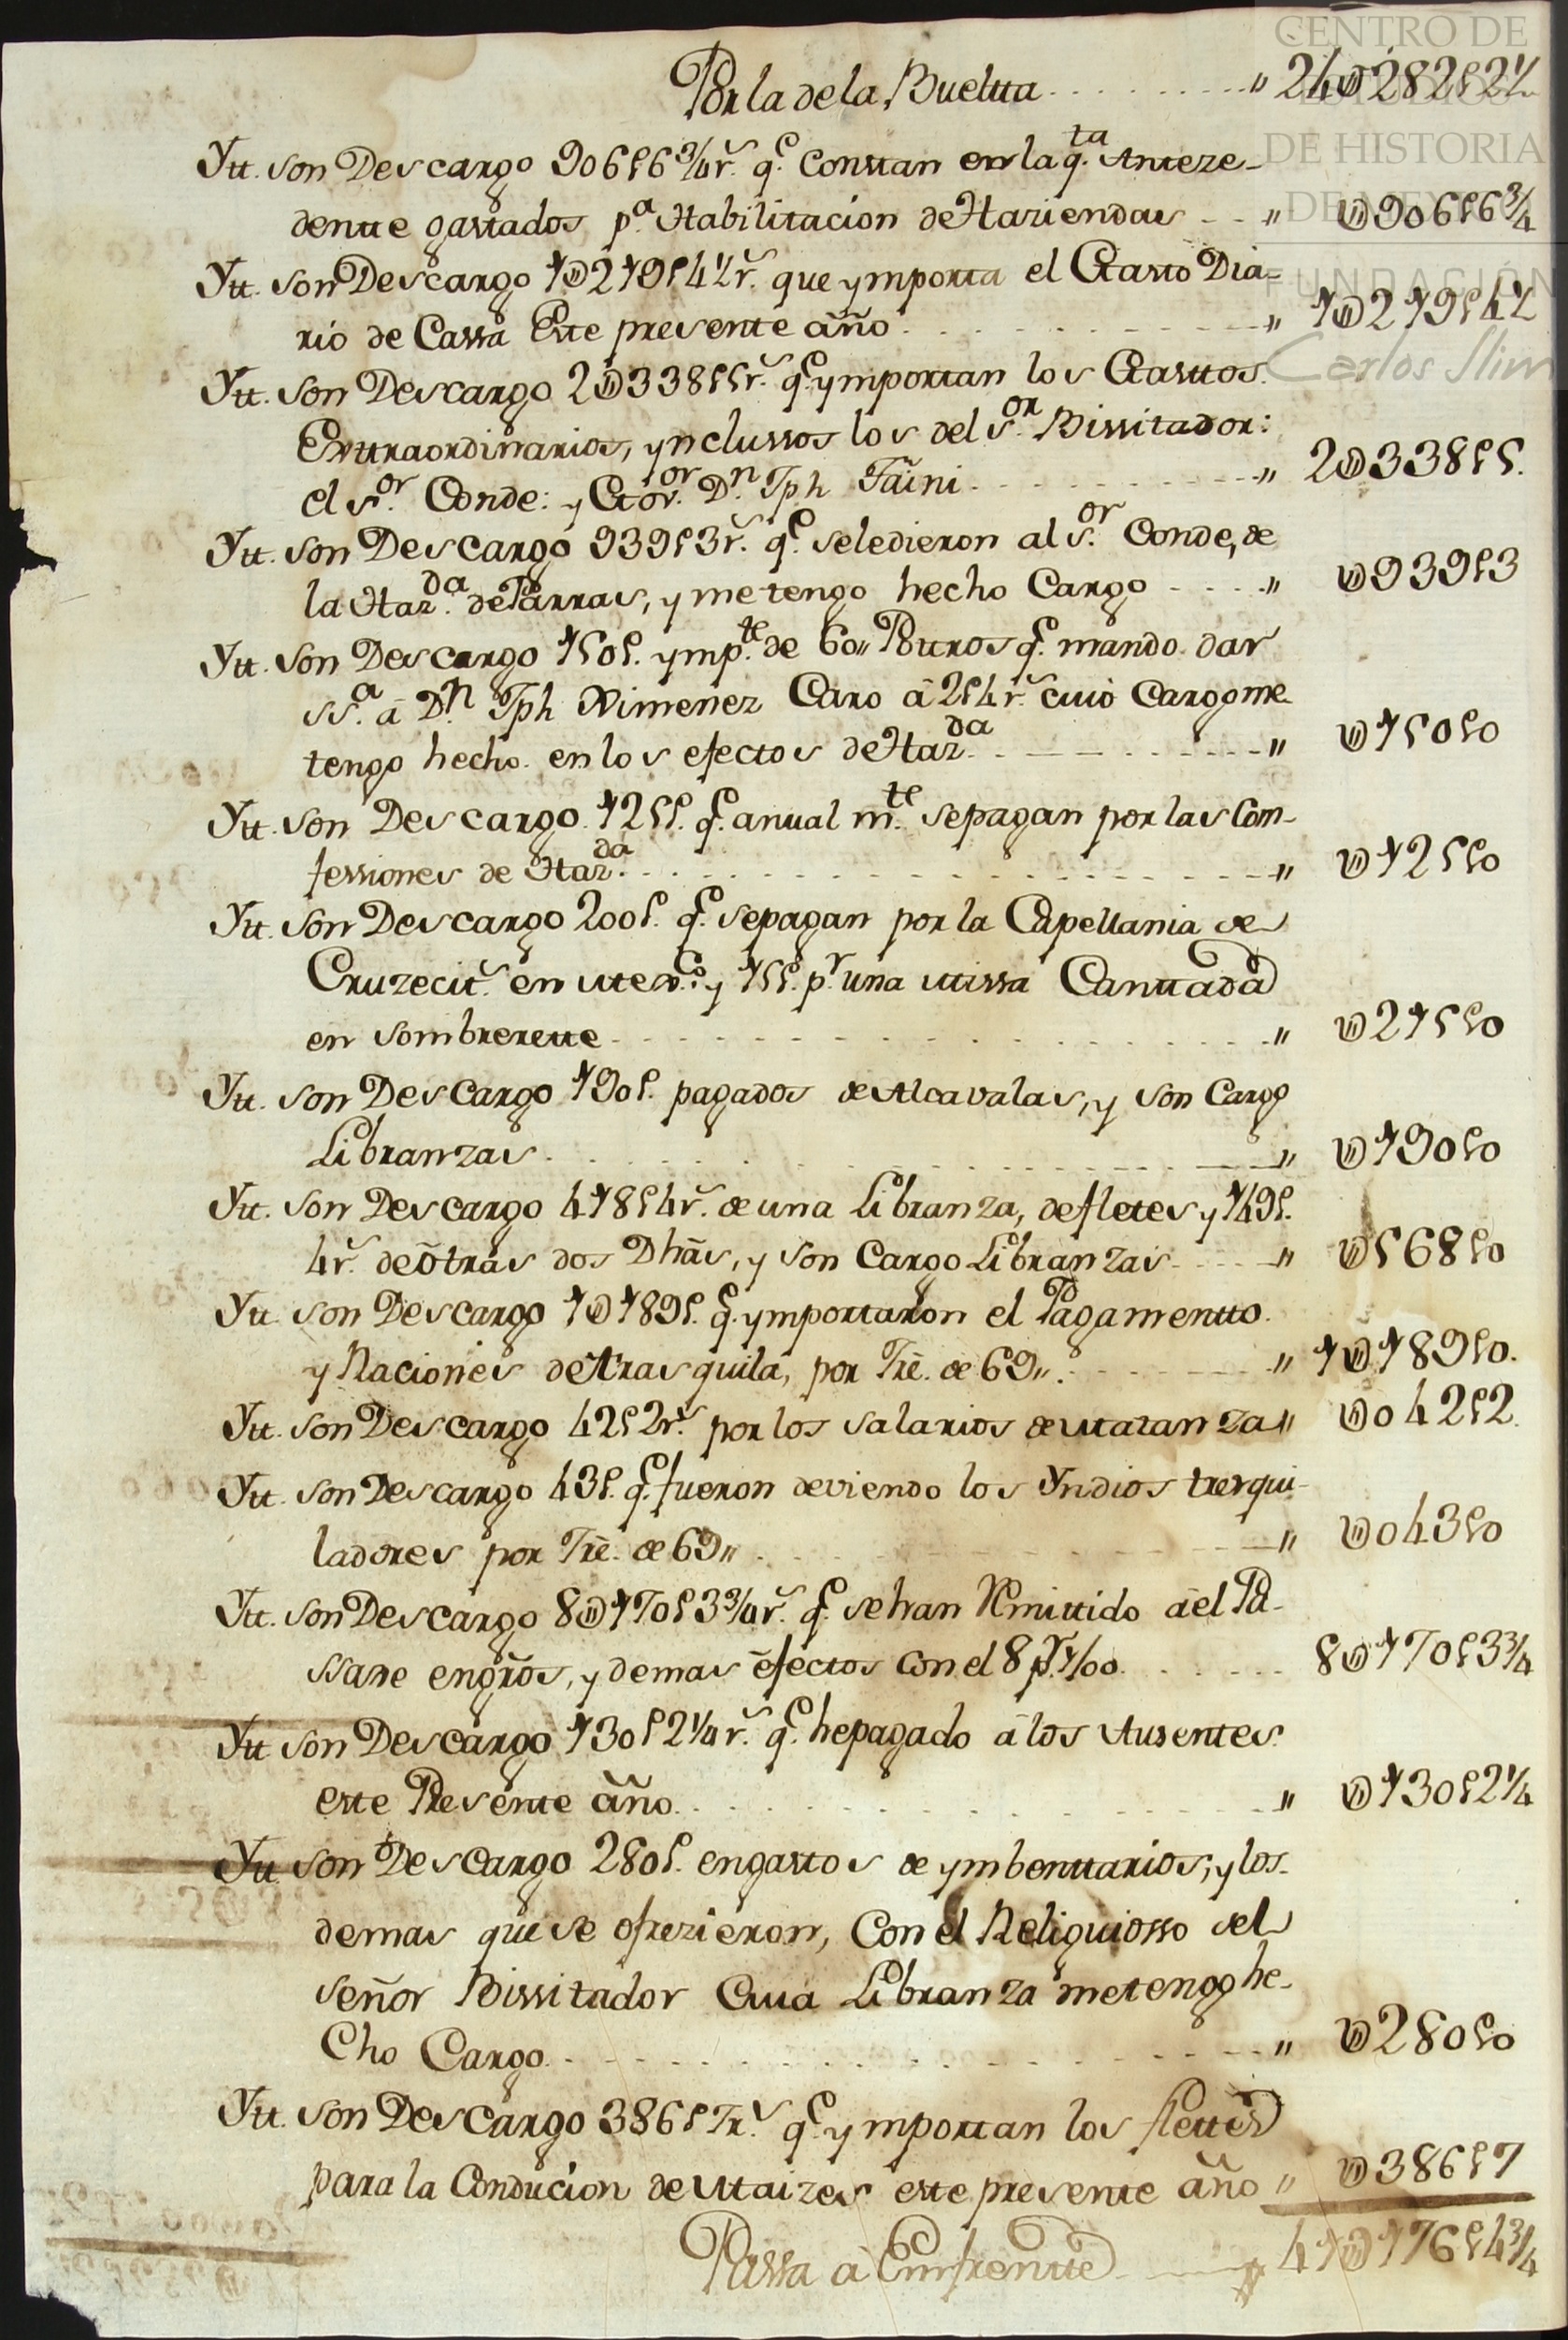 CENTRO DE
DE HISTORIA
FUNDACIÓN
Carlos Slim
Por la de la Buelta . . . . . . . . . . " 24U282p2½
Ytt. son Descargo 906p6¾rs. qe. Constan en la qta. Anteze-
dentte gastados pa. Habilitacion de Haziendas - - " U906p6¾
Ytt. son Descargo 1U219p4½rs. que ymporta el Gasto Dia=
rio de Cassa Este presente año . . . . . . " 1U219p4½
Ytt. son Descargo 2U338p5rs. qe. ymportan los Gasttos.
Extraordinarios, ynclussos los del Sor. Bissitador:
el Sor. Conde: y Gor. Dn. Jph Faini . . . . . . " 2U338p5.
Ytt. son Descargo 939p3rs. qe. se le dieron al Sor. Conde, de
la Hazda. de Parras, y me tengo hecho Cargo - . . . " U939p3
Ytt. son Descargo 150p. ympte. de 60" Potros qe. mando dar
SSa. â Dn. Jph Ximenez Caro â 2p4rs. cuio Cargo me
tengo hecho en los efectos de Hazda. . . . . . . " U150p0
Ytt. son Descargo 125p. qe. anual mte. se pagan por las Com-
fessiones de Hazda. . . . . . . . . . " U125p0
Ytt. son Descargo 200p. qe. se pagan por la Capellania de
Cruzecits. en Mexco. y 15p. pr. una Missa Canttada
en Sombrerette . . . . . . . . . " U215p0
Ytt. son Descargo 190p. pagados de Alcavalas, y son Cargo
Libranzas . . . . . . . . . " U190p0
Ytt. son Descargo 418p4rs. de una Libranza, de fletes y 149p.
4rs. de õtras dos Dhãs, y son Cargo Libranzas - . . . " U568p0
Ytt. son Descargo 1U189p. qe. ymportaron el Pagamentto.
y Raciones de trasquila, por Tre. de 69". . . . . . " 1U189p0.
Ytt. son Descargo 42p2rs. por los Salarios de Matanza " U042p2.
Ytt. son Descargo 43p. qe. fueron deviendo los Yndios tresqui-
ladores por Tre. de 69" . . . . . . " U043p0
Ytt. son Descargo 8U170p3¾rs. qe. se han Remittido âel Pa-
ssare engros, y demas êfectos con el 8 pr. %00. . . . . . 8U170p3¾
Ytt son Descargo 130p2¼rs. qe. he pagado â los Ausentes.
este Presente año . . . . . . . . " U130p2¼
Ytt son Descargo 280p. en gastos de ymbenttarios, y los
demas que se ofrezieron, Con el Religiosso del
Señor Bissitador Cuia Libranza me tengo he-
cho Cargo. - . . . . . . . . . " U280p0
Ytt. son Descargo 386p7rs. qe. ymportan los flettes
para la Conducion de Maizes este presente año " U386p7
Passa â Enfrentte . . . . . 41U176p4¾